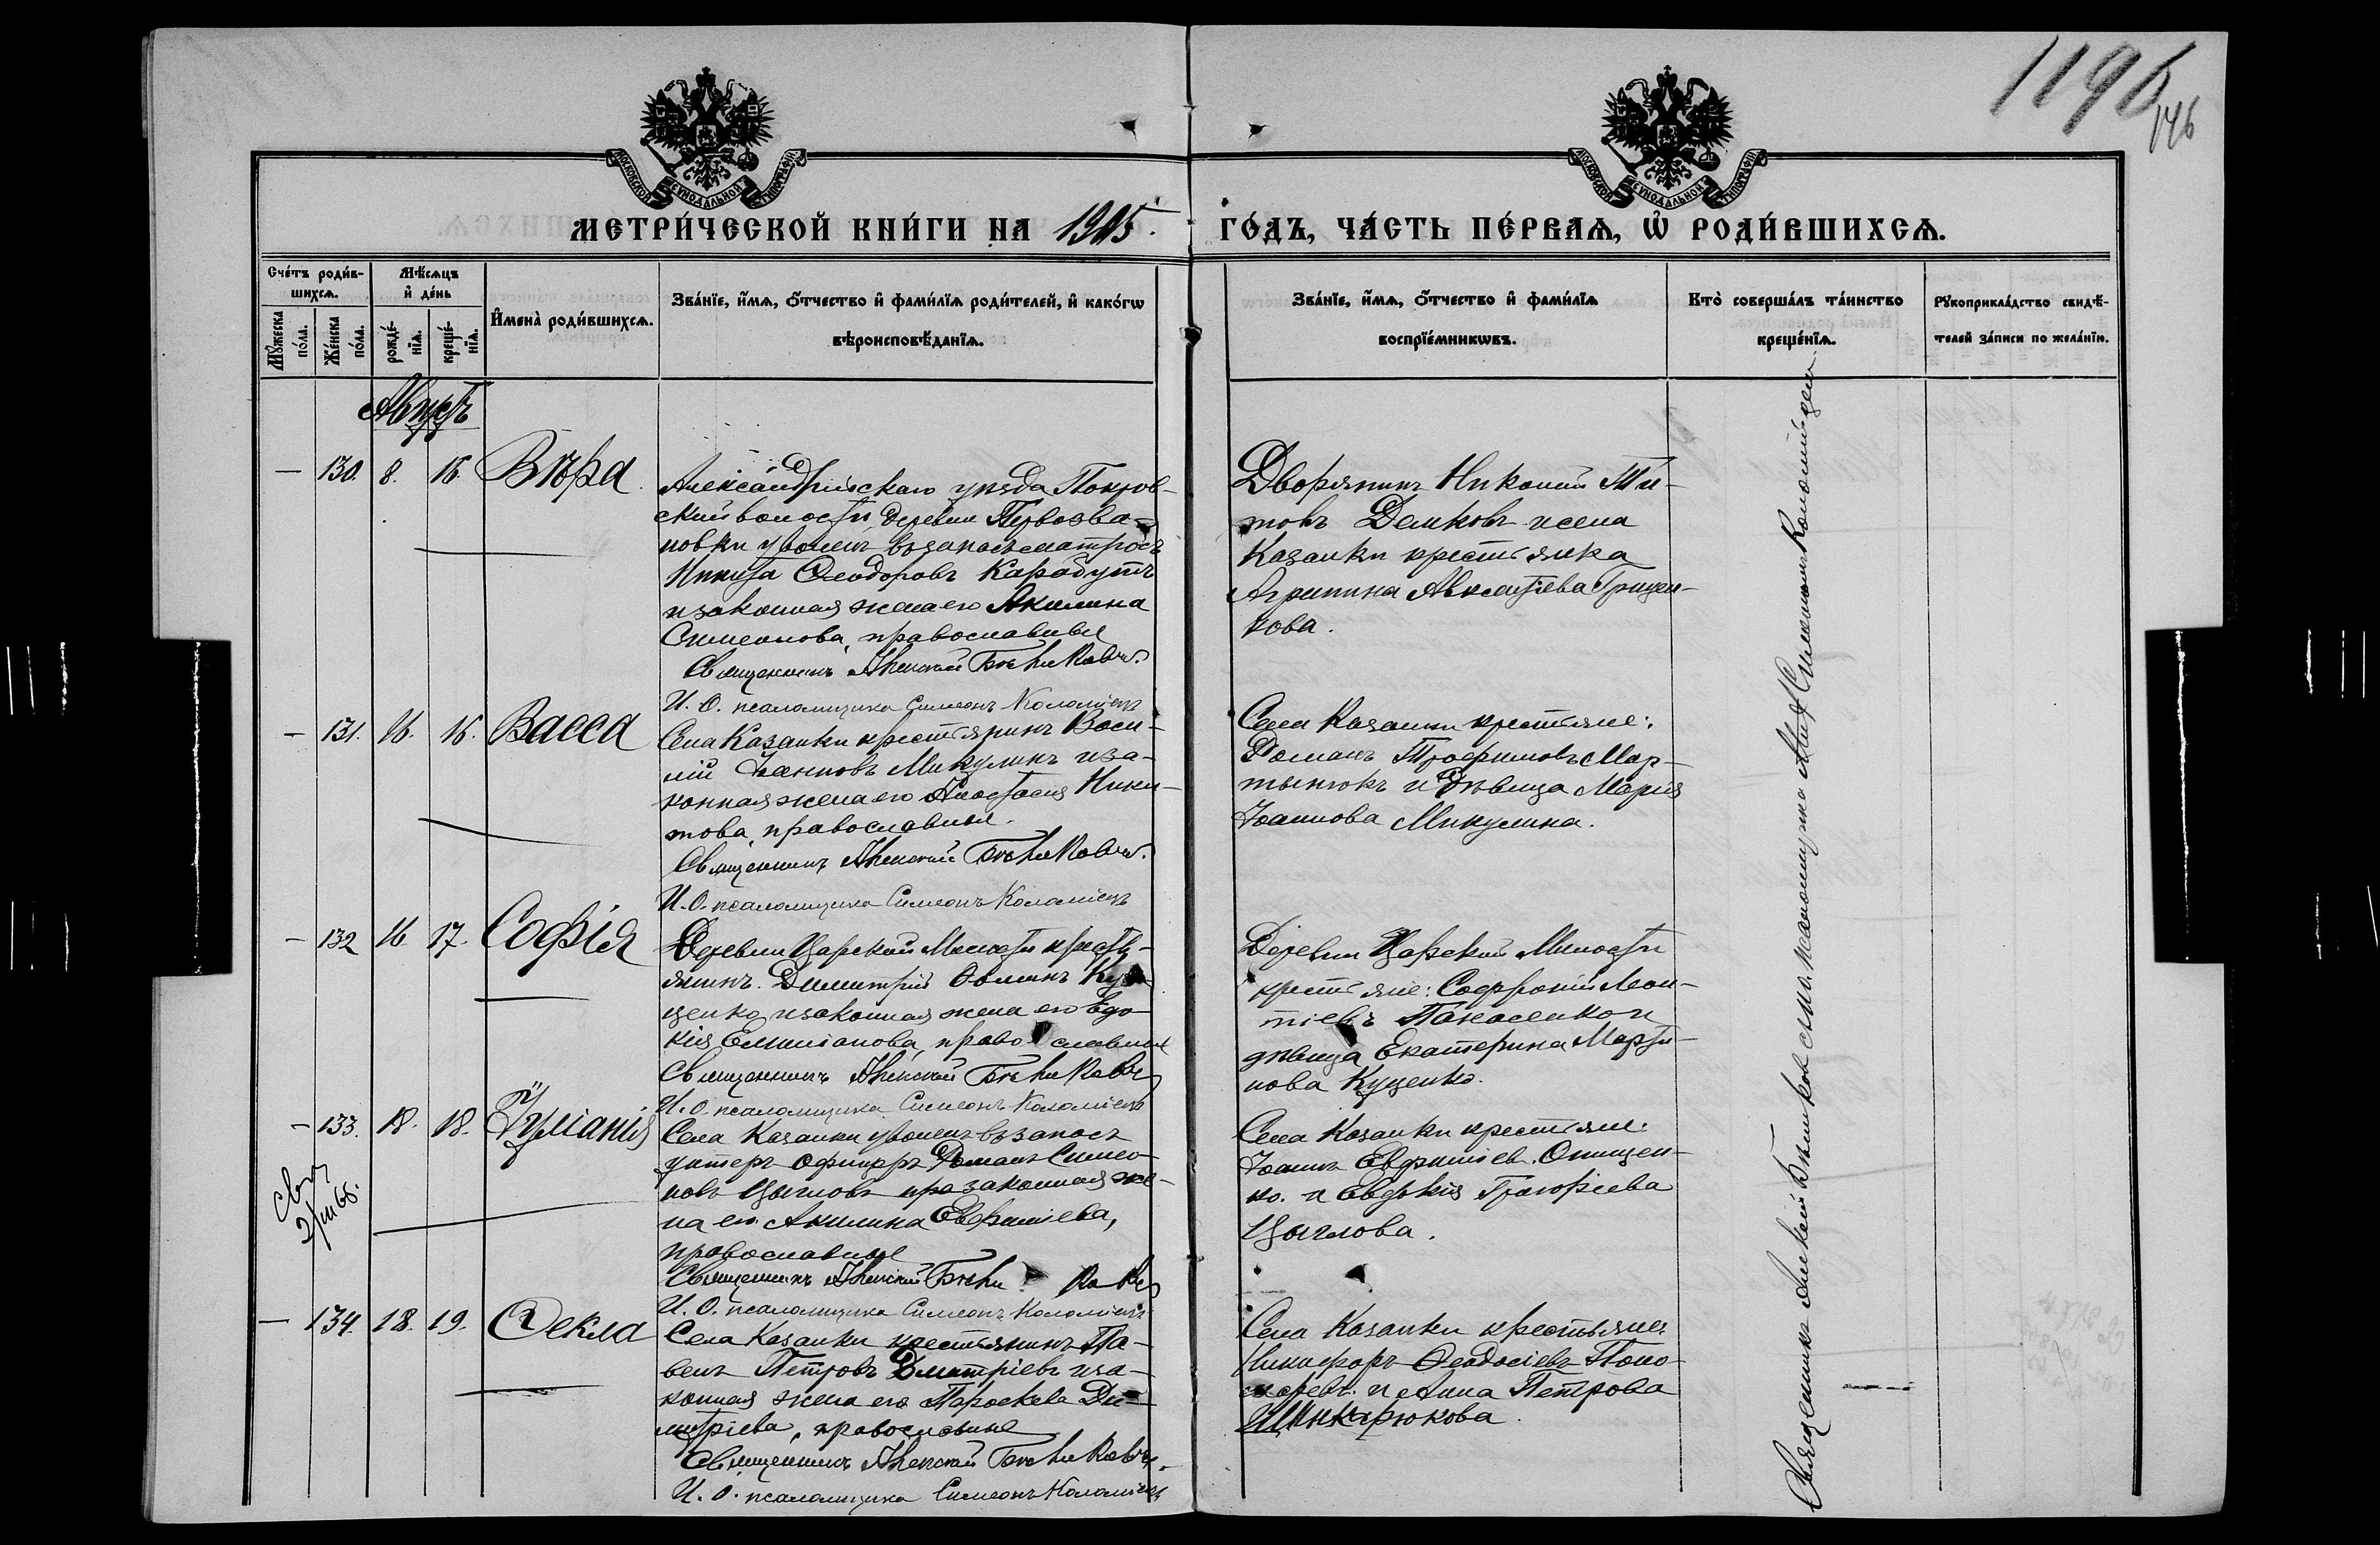 1196
146
МОСКОВСКОЙ СѴНОДАЛЬНОЙ ТИПОГРАФІИ
МОСКОВСКОЙ СѴНОДАЛЬНОЙ ТИПОГРАФІИ
МЕТРИ́ЧЕСКОЙ КНИ́ГИ НА 1905.
ГО́ДЪ, ЧА́СТЬ ПЕ́РВАѦ, Ѡ҆ РОДИ́ВШИХСѦ.
Сче́тъ роди́в-
шихсѧ.
Мꙋ́жеска по́ла.
Же́нска по́ла.
Мѣ́сѧцъ
и҆ де́нь
рожде́-
нїѧ.
креще́-
нїѧ.
И҆мена̀ роди́вшихсѧ.
Зва́нїе, и҆́мѧ, ѻ҆́тчество и҆ фами́лїѧ роди́телей, и҆ како́гѡ
вѣроисповѣ́данїѧ.
Зва́нїе, и҆́мѧ, ѻ҆́тчество и҆ фами́лїѧ
воспрїе́мникѡвъ.
Кто̀ соверша́лъ та́инство
креще́нїѧ.
Рꙋкоприкла́дство свидѣ́-
телей за́писи по жела́нїю.
Августъ
— 130. 8. 16. Вѣра
Александрійскаго уѣзда Покров-
ской волости, деревни Первозва-
новки уволен. въ запасъ матросъ
Никита Ѳеодоровъ Карабутъ
и законная жена его Акилина
Симеонова, православные
Священникъ Алексій Бѣликовъ.
И. О. псаломщика Симеонъ Коломіецъ
Дворянинъ Никодим Ти-
товъ Демковъ и села
Казанки крестьянка
Агрипина Авксентіева Грицен-
кова.
— 131. 16. 16. Васса
Села Казанки крестьянинъ Васи-
лій Іоанновъ Микулинъ и за-
конная жена его Анастасія Ники-
това, православные.
Священникъ Алексій Бѣликовъ.
И. О. псаломщика Симеонъ Коломіецъ
Села Казанки крестьяне:
Романъ Трофимовъ Мар-
тынюкъ и дѣвица Марія
Іоаннова Микулина.
— 132 16. 17. Софія
Деревни Царской Милости кресть-
янинъ Димитрій Ѳоминъ Ку-
ценко и законная жена его Евдо-
кія Емиліанова, православные
Священникъ Алексій Бѣликовъ
И. О. псаломщика Симеонъ Коломіецъ
Деревни Царской Милости
крестьяне: Софроній Леон-
тіевъ Панасенко и
дѣвица Екатерина Марти-
нова Куценко.
— 133. 18. 18. Іуліанія
Села Казанки уволен. въ запасъ
унтеръ офицеръ Романъ Симео-
новъ Цыгловъ и законная же-
на его Акилина Евфиміева,
православные
Священникъ Алексій Бѣликовъ
И. О. псаломщика Симеонъ Коломіецъ
Села Казанки крестьяне:
Іоаннъ Евфиміев. Онищен-
ко. и Евдокія Григоріева
Цыглова.
— 134. 18. 19. Ѳекла
Села Казанки крестьянинъ Па-
велъ Петровъ Дмитріевъ и за-
конная жена его Параскева Ди-
митріева, православные
Священникъ Алексій Бѣликовъ.
И. О. псаломщика Симеонъ Коломіецъ
Села Казанки крестьяне:
Никифоръ Ѳеодосіевъ Поно-
маревъ. и Анна Петрова
Шинкарюкова.
Священникъ Алексій Бѣликовъ съ и. д. псаломщика Симеономъ Коломійцемъ